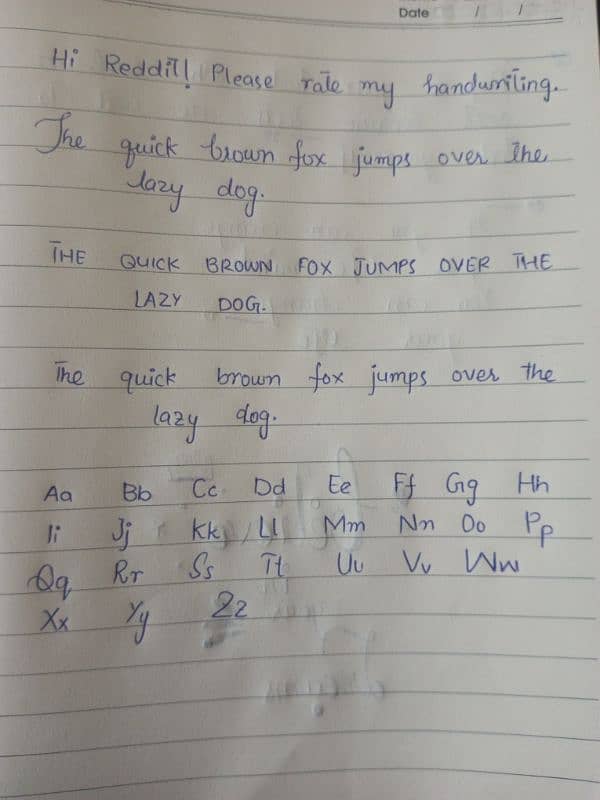 Date / /
Hi Reddit! Please rate my handwriting.
The quick brown fox jumps over the
lazy dog.
THE QUICK BROWN FOX JUMPS OVER THE
LAZY DOG.
The quick brown fox jumps over the
lazy dog.
Aa Bb Cc Dd Ee Ff Gg Hh
Ii Jj Kk Ll Mm Nn Oo Pp
Qq Rr Ss Tt Uu Vv Ww
Xx Yy Zz